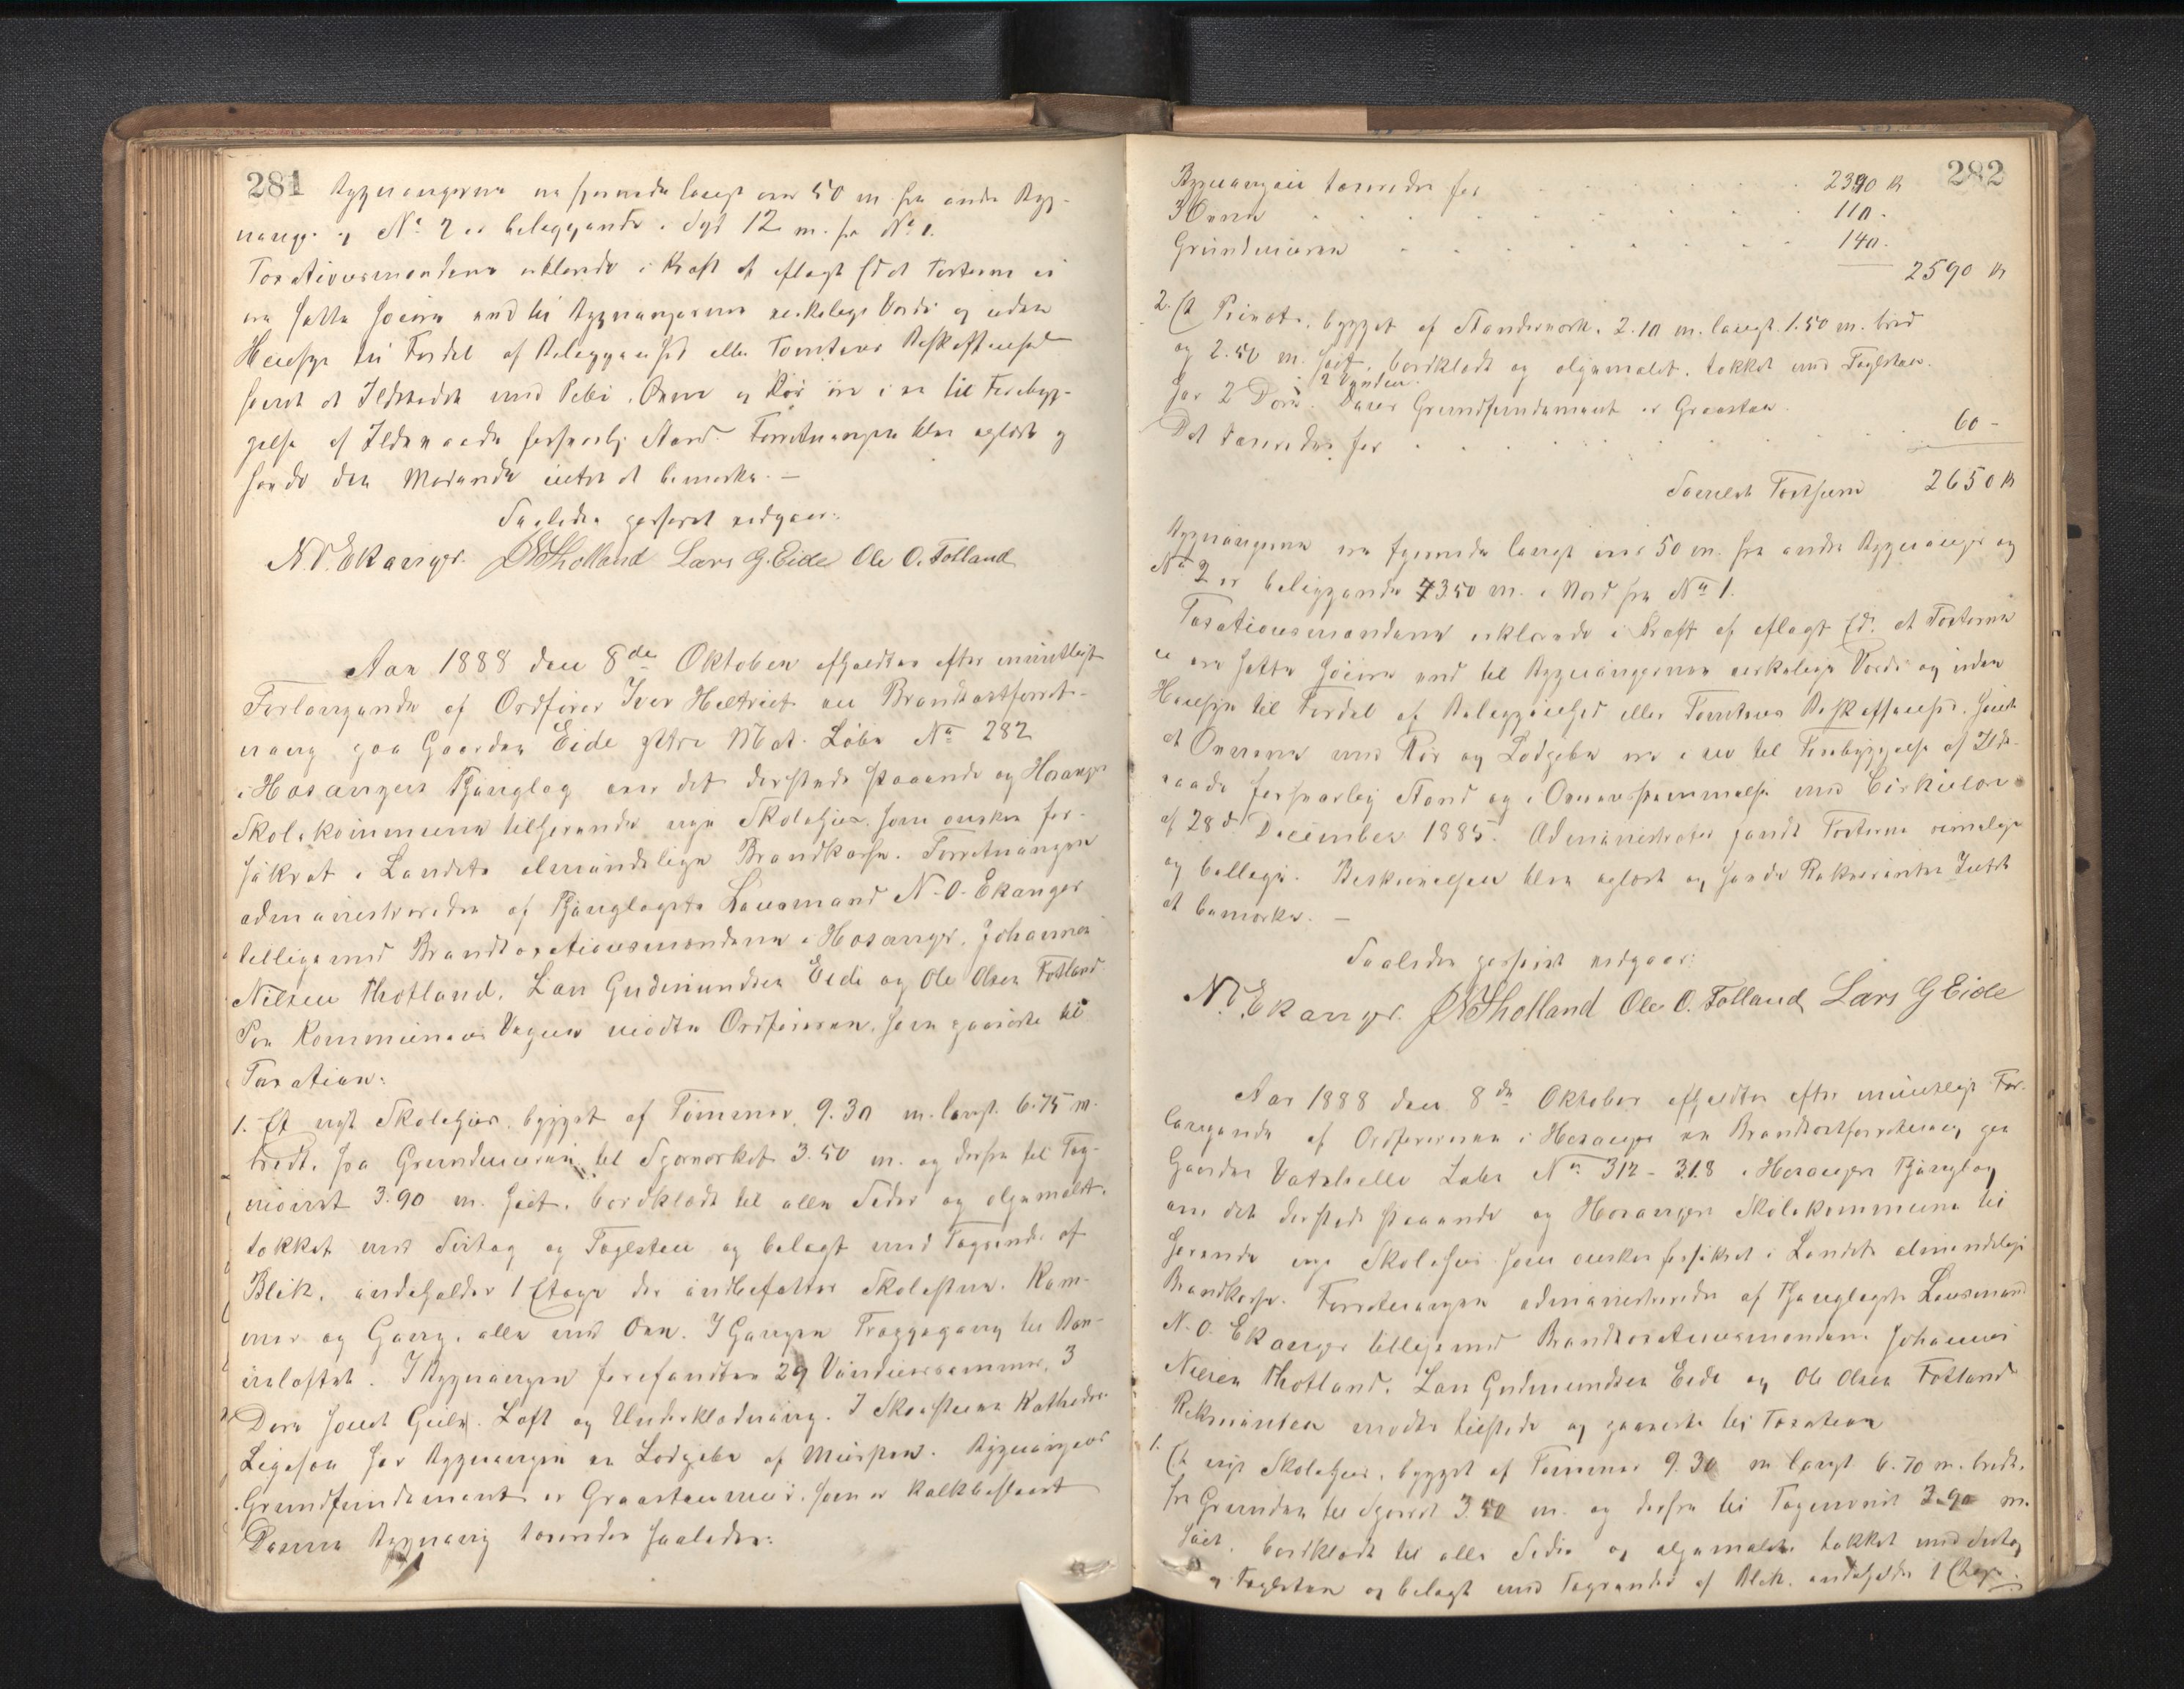 281
Bygningerne ere fjernede længst over 50 m fra andre Byg-
ninger og No 2 er beliggende i Syd 12 m. fra No 1.
Taxationsmændene erklærede i Kraft af aflagt Ed at Taxterne ei
ere satte høiere end til Bygningernes virkelige Værdi og uden
Hensyn til Fordel af Beliggenhed eller Tomtens Beskaffenhed
samt at Ildstedet med Pibe, Ovne og Rør ere i en til Forebyg-
gelse af Ildsvaade forsvarlig Stand. Forretningen blev oplæst og
havde den Mødende intet at bemærke. –
Saaledes passeret vedgaar:
N. O. Ekanger. J N Thotland Lars G. Eide Ole O. Fotland
Aar 1888 den 8de Oktober afholdtes efter mundtligt
Forlangende af Ordfører Iver Heltveit en Branttaxtforret-
ning paa Gaarden Eide Mat. Løbe No 282
i Hosangers Thinglag over det dersteds staaende og Hosanger
Skolekommune tilhørende nye Skolehus, som ønskes for-
sikret i Landets almindelige Brandkasse. Forretningen
administreredes af Thinglagets Lensmand N. O. Ekanger
tilligemed Brandtaxationsmændene i Hosanger, Johannes
Nilsen Thotland, Lars Gudmundsen Eide og Ole Olsen Fotland
Paa Kommunens Vegne mødte Ordføreren, som paaviste til
Taxation:
1. Et nyt Skolehus, bygget af Tømmer, 9.30 m. langt, 6.75 m.
bredt, fra Grundmuren til Sperværket 3.50 m. og derfra til Tag-
mønet 3.90 m. høit, bordklædt til alle Sider og oljemalet,
takket med Sutag og Taglsten og belagt med Tagrender af
Blik, indeholder 1 Etage der indbefatter Skolestue, Kam-
mer og Gang, alle med Ovn. I Gangen Trappegang til Bon-
inloftet. I Bygningen forefandtes 29 Vinduesrammer, 3
Døre samt Gulv, Loft og Underklædning. I Skolestuen Katheder
Ligesaa har Bygningen en Lodpibe af Mursten. Bygningens
Grundfundament er Graastensmur, som er kalkbeslaaet
Denne Bygning taxeredes saaledes:
282
Bygningen taxeredes for 2340 Kr
3 Ovne 110.
Grundmuren 140.
2590 Kr
2. Et Privet, bygget af Standerværk, 2.10 m. langt, 1.50 m. bred
og 2.50 m. høit, bordklædt og oljemalet, takket med Taglsten.
har 2 Døre. 2 Vinduer. Dens Grundfundament er Graasten.
Det taxeredes for 60 –
Samlet Taxtsum 2650 Kr
Bygningerne ere fjernede længst over 50 m. fra andre Bygninger og
No 2 er beliggende 7350 m. i Nord fra No 1.
Taxationsmændene erklærede i Kraft af aflagt Ed, at Taxterne
ei ere satte høiere end til Bygningernes virkelige Værdi og uden
Hensyn til Fordel af Beliggenhed eller Tomtens Beskaffenhed, samt
at Ovnene med Rør og Lodpibe ere i en til Forebyggelse af Ilds-
vaade forsvarlig Stand og i Overensstemmelse med Cirkulære
af 28d December 1885. Administrator fandt Taxterne rimelige
og billige. Beskrivelsen blev oplæst og havde Rekvirenten Intet
at bemærke. –
Saaledes passeret vedgaar:
N. O. Ekanger. J N Thotland Ole O. Fotland Lars G Eide
Aar 1888 den 8de Oktober afholdtes efter mundtligt For-
langende af Ordføreren i Hosanger en Brandtaxtforretning paa
Gaarden Vatshelle Løbe No 312 - 318 i Hosangers Thinglag
over det dersteds staaende og Hosangers Skolekommune til
hørende nye Skolehus som ønskes forsikret i Landets almindelige
Brandkasse. Forretningen administreredes af Thinglagets Lensmand
N. O. Ekanger tilligemed Brandtaxationsmændene Johannes
Nilsen Thotland, Lars Gudmundsen Eide og Ole Olsen Fotland
Rekvirenten mødte tilstede og paaviste til Taxation
1. Et nyt Skolehus, bygget af Tømmer 9.30 m langt 6.70 m. bredt,
fra Grunden til Sperret 3.50 m. og derfra til Tagmønet 3.90 m.
høit, bordklædt til alle Sider og oljemalet takket med Sutag
og Taglsten og belagt med Tagrender af Blik, indeholder 1 Etage